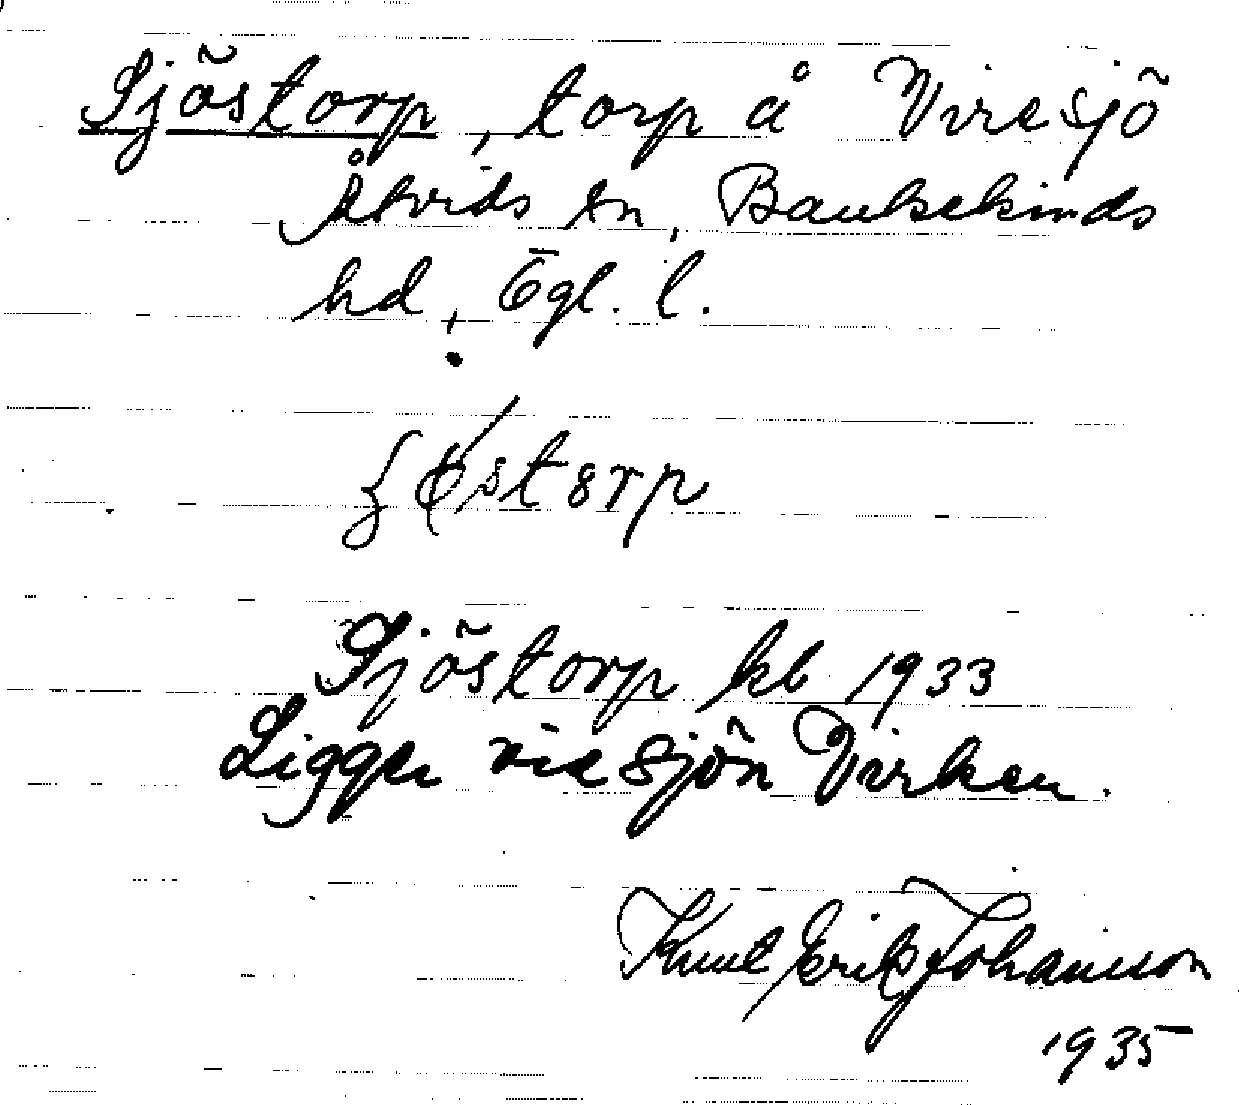 Sjöstorp, torp å Viresjö
Åtvids sn, Bankekinds
hd, Ögl. l.
Sjöstorp kb 1933
Ligger vid sjön Virken.
Knut Erik Johansson
1935